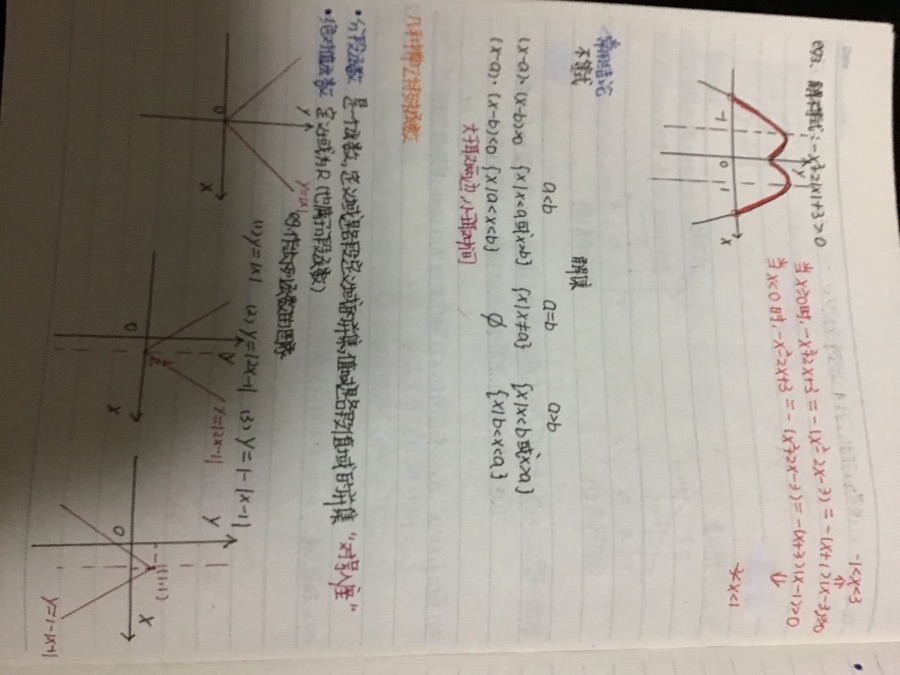 例2. 解不等式：-x²+2|x|+3>0
当x≥0时, -x²+2x+3 = -(x²-2x-3) = -(x+1)(x-3)>0
-1<x<3
当x<0时, -x²-2x+3 = -(x²+2x-3) = -(x+3)(x-1)>0
-3<x<1
y
-1 0 1 x
常用结论
不等式
解集
a<b a=b a>b
(x-a)·(x-b)>0 {x|x<a或x>b} {x|x≠a} {x|x<b或x>a}
(x-a)·(x-b)<0 {x|a<x<b} ∅ {x|b<x<a}
大于取两边 小于取中间
几种特殊函数
·分段函数 是一个函数,定义域是各段定义域的并集,值域是各段值域的并集 "对号入座"
·绝对值函数 定义域为R (也属于分段函数)
例.作出下列函数的图象
(1) y=|x| (2) y=|2x-1| (3) y=1-|x-1|
y y=|x|
0 x
y y=|2x-1|
0 x
y
(1,1)
0 x
y=1-|x-1|